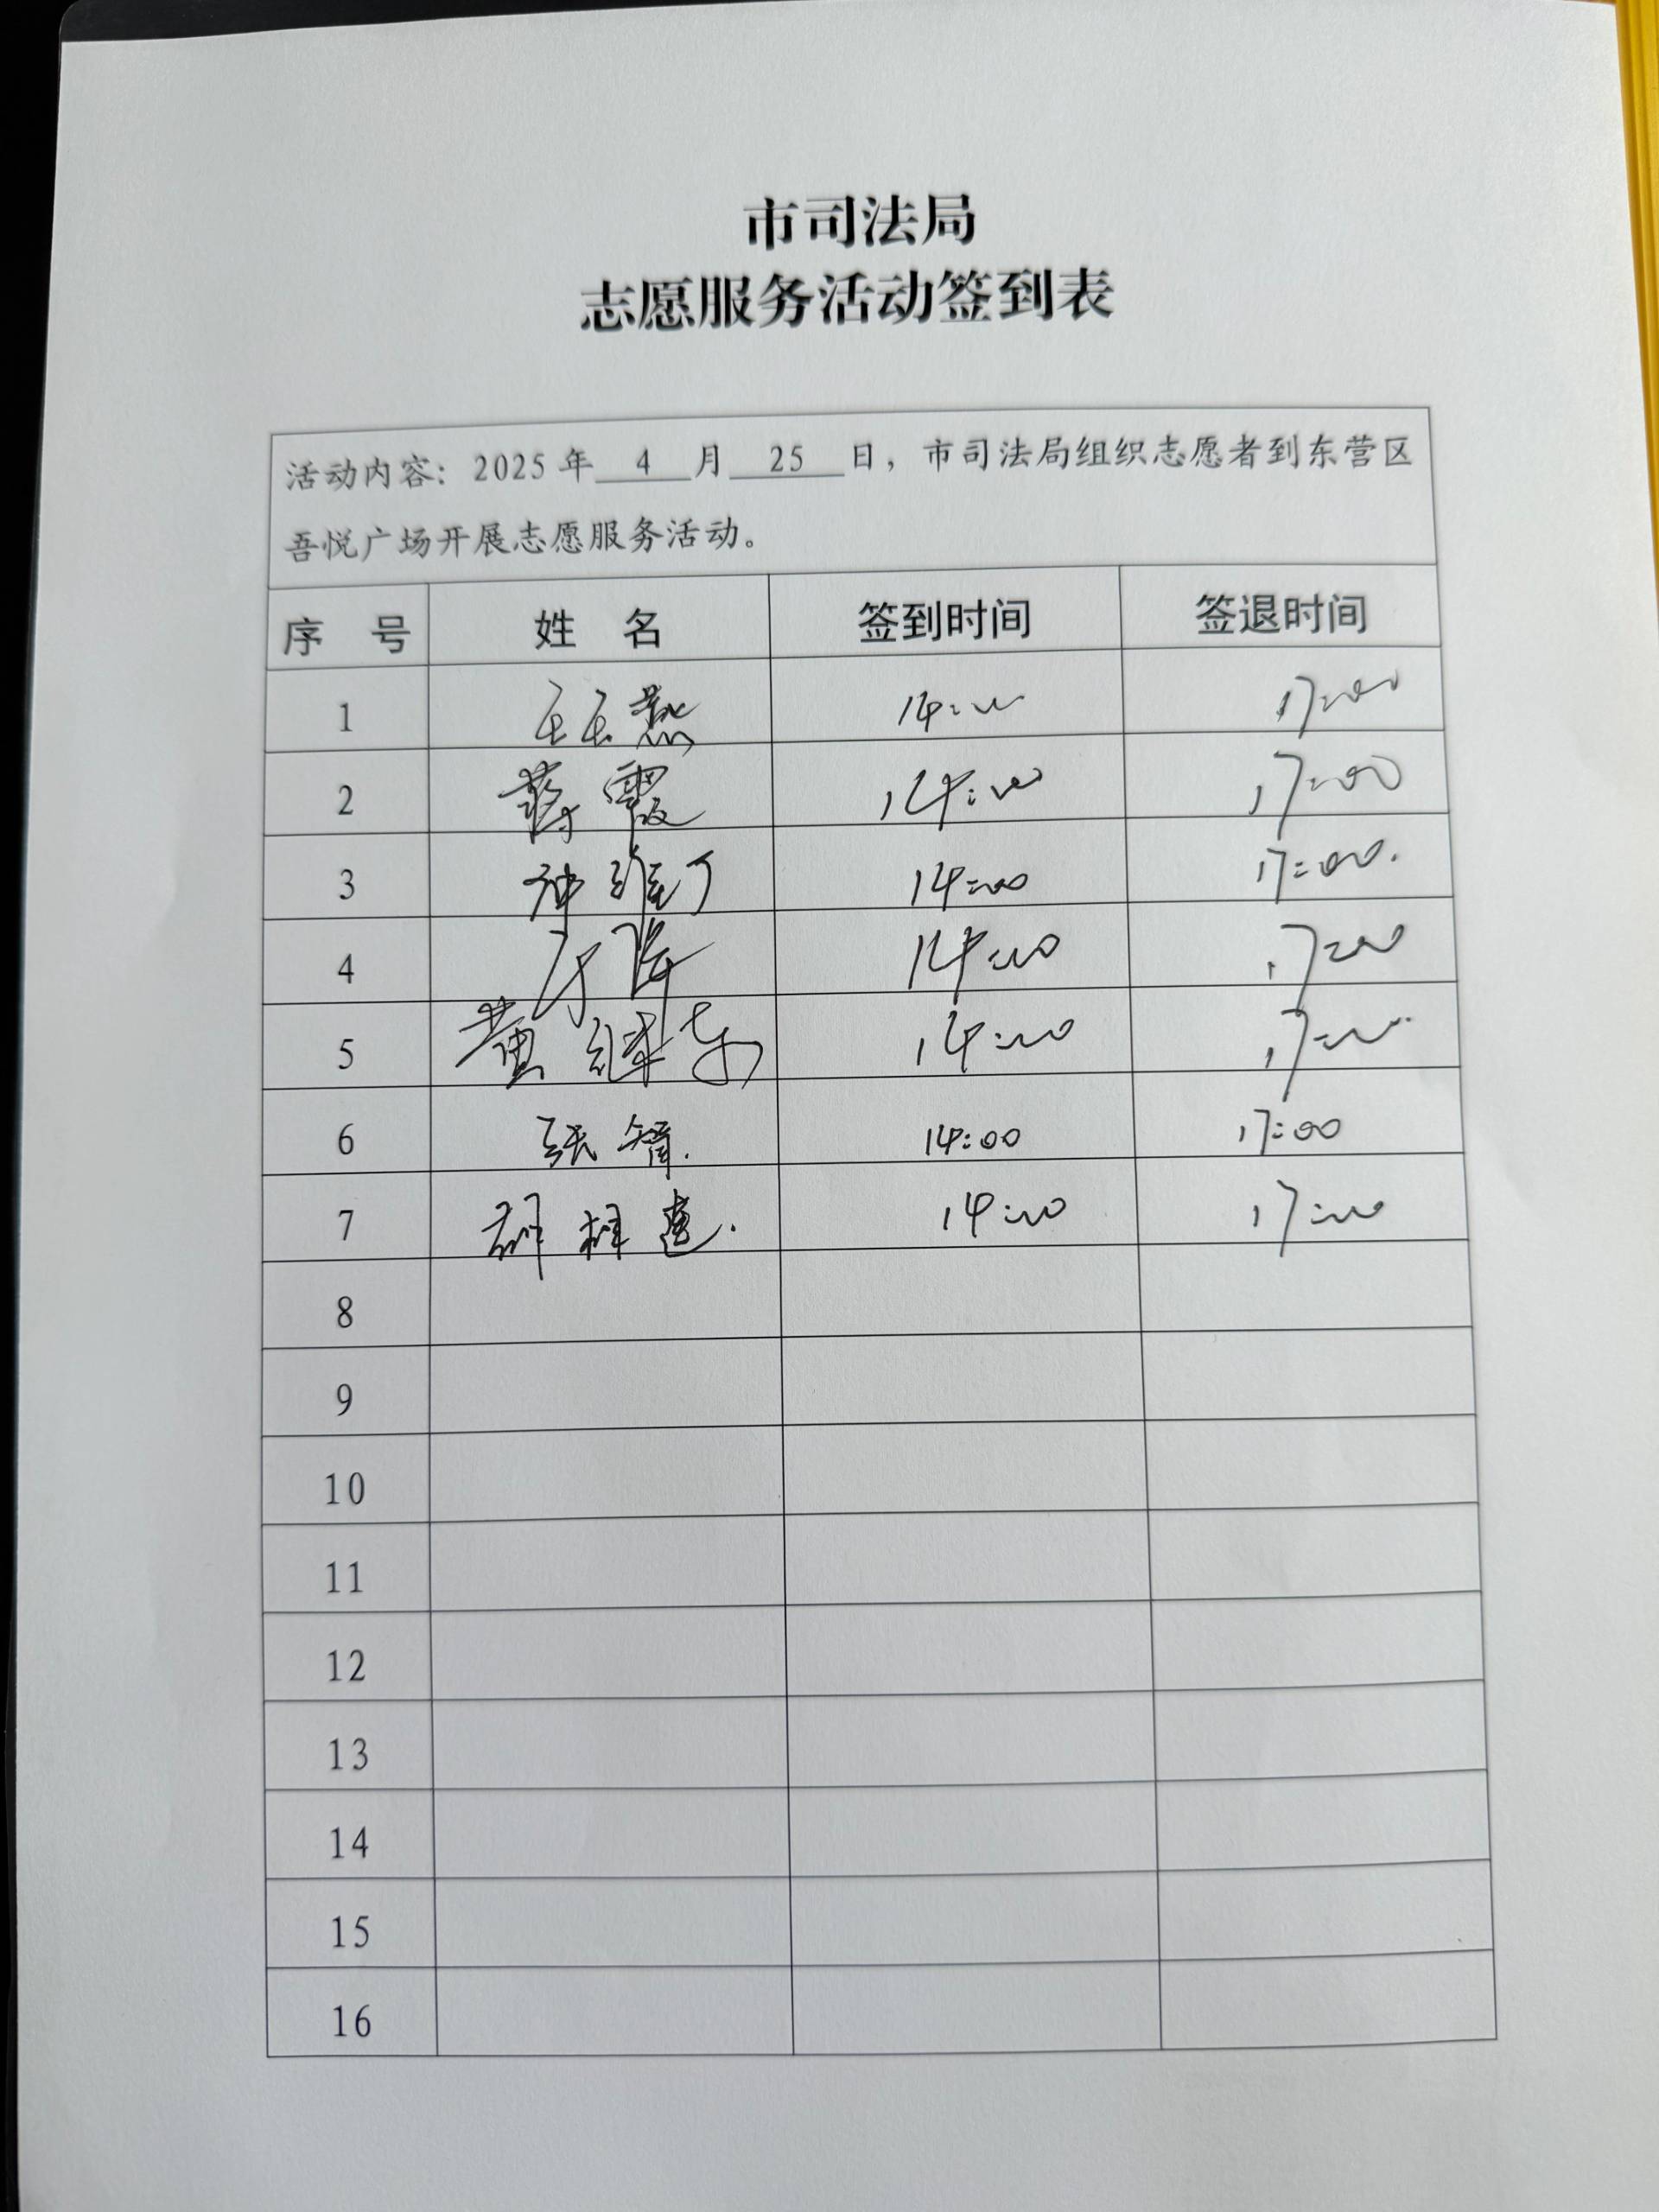 市司法局
志愿服务活动签到表
活动内容：2025年 4 月 25 日，市司法局组织志愿者到东营区
吾悦广场开展志愿服务活动。
序 号 姓 名 签到时间 签退时间
1 14:00 17:00
2 蒋霞 14:00 17:00
3 14:00 17:00.
4 14:00 17:00
5 黄继东 14:00 17:00
6 张智. 14:00 17:00
7 14:00 17:00
8
9
10
11
12
13
14
15
16